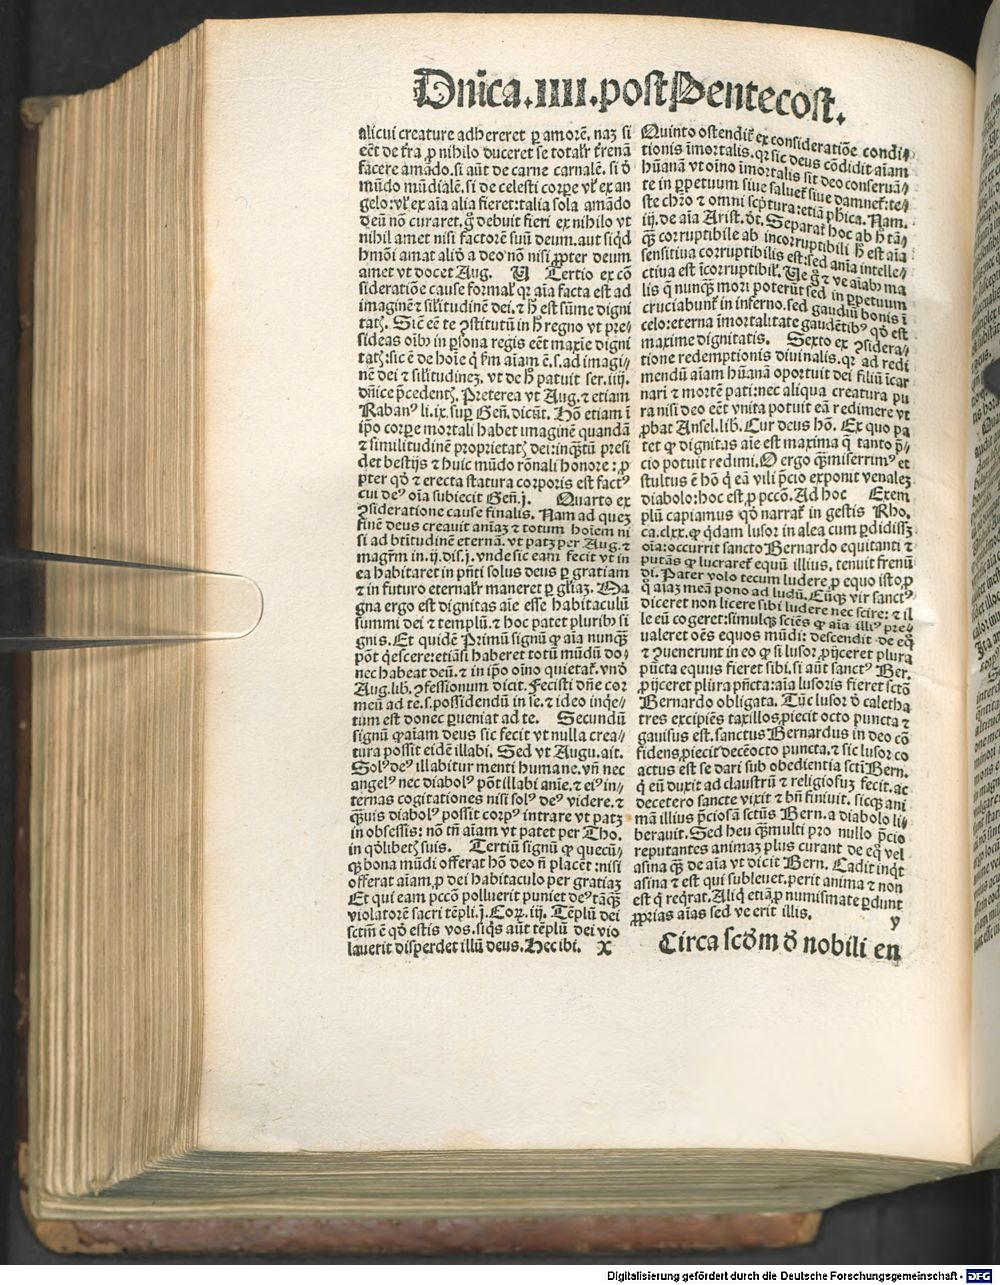 Dnĩca.IIII.post Pentecost.
alicui creature adhereret ꝑ amorẽ, naꝫ si
eẽt de t̃ra ꝓ nihilo duceret se totalr̃ t̃renã
facere amãdo. si aũt de carne carnalẽ. si ð
mũdo mũdialẽ. si de celesti corꝑe vl̃ ex an
gelo: vl̃ ex aĩa alia fieret: talia sola amãdo
deũ nõ curaret. g̊ debuit fieri ex nihilo vt
nihil amet nisi factorẽ suũ deum. aut siq̇d
hmõi amat alið a deo nõ nisi ꝓpter deum
amet vt docet Aug. U Tertio ex cõ
sideratiõe cause formal̃ qꝛ aĩa facta est ad
imaginẽ ⁊ sil̃itudinẽ dei. ⁊ h̃ est sũme digni
tatꝭ. Sic̃ eẽ te ꝯstitutũ in h̃ regno vt pre⸗
sideas oĩbꝰ in ꝑsona regis eẽt maxĩe digni
tatꝭ: sic ẽ de hoĩe q̇ s̃m aĩam ẽ. s. ad imagi⸗
nẽ dei ⁊ sil̃itudineꝫ. vt de h̃ patuit ser. iiij.
dñice p̃cedentꝭ. Preterea vt Aug. ⁊ etiam
Rabanꝰ li. ix. suꝑ Geñ. dicũt. Hõ etiam ĩ
ip̃o corꝑe mortali habet imaginẽ quandã
⁊ similitudinẽ proprietatꝭ dei: inq̃tũ presi
det bestijs ⁊ huic mũdo rõnali honore: ꝓ
pter qð ⁊ erecta statura corporis est factꝰ
cui deꝰ oĩa subiecit Geñ. j. Quarto ex
ꝯsideratione cause finalis. Nam ad queꝫ
finẽ deus creauit anĩaꝫ ⁊ totum hoĩem ni
si ad btĩtudinẽ eternã. vt patꝫ per Aug. ⁊
magr̃m in. ij. dis. j. vnde sic eam fecit vt in
ea habitaret in pñti solus deus ꝑ gratiam
⁊ in futuro eternalr̃ maneret ꝑ gl̃iaꝫ. Ma
gna ergo est dignitas aĩe esse habitaculũ
summi dei ⁊ templũ. ⁊ hoc patet pluribꝰ si
gnis. Et quidẽ Primũ signũ ꝙ aĩa nunq̃ꝫ
põt q̇escere: etiãsi haberet totũ mũdũ do⸗
nec habeat deũ. ⁊ in ip̃o oĩno quietat̃. vnð
Aug. lib. ꝯfessionum dicit. Fecisti dñe cor
meũ ad te. s. possidendũ in se. ⁊ ideo inq̇e⸗
tum est donec ꝑueniat ad te. Secundũ
signũ ꝙ aĩam deus sic fecit vt nulla crea⸗
tura possit eidẽ illabi. Sed vt Augu. ait.
Solꝰ deꝰ illabitur menti humane. vñ nec
angelꝰ nec diabolꝰ põt illabi anĩe. ⁊ eiꝰ in⸗
ternas cogitationes nisi solꝰ deꝰ videre. ⁊
q̃uis diabolꝰ possit corpꝰ intrare vt patꝫ
in obsessis: nõ tñ aĩam vt patet per Tho.
in q̇libetꝭ suis. Tertiũ signũ ꝙ quecũ⸗
qꝫ bona mũdi offerat hõ deo ñ placẽt: nisi
offerat aĩam ꝓ dei habitaculo per gratiaꝫ
Et qui eam pccõ polluerit puniet deꝰ tãq̃ꝫ
violatorẽ sacri tẽpli. j. Corꝫ. iij. Tẽplũ dei
sctm̃ ẽ qð estis vos. siq̇s aũt tẽplũ dei vio
lauerit disperdet illũ deus. Hec ibi. X
Quinto ostendit̃ ex consideratiõe condi⸗
tionis ĩmortalis. qꝛ sic deus cõdidit aĩam
hũanã vt oĩno ĩmortalis sit deo conseruã⸗
te in ꝑpetuum siue saluet̃ siue damnet̃: te⸗
ste chr̃o ⁊ omni scp̃tura: etiã pħica. Nam.
iij. de aĩa Arist. ðt. Separat̃ hoc ab h̃ tã⸗
q̃ꝫ corruptibile ab incorruptibili h̃ est aĩa
sensitiua corruptibilis est: sed anĩa intelle⸗
ctiua est ĩcorruptibil̃. Ue g̊ ⁊ ve aĩabꝰ ma
lis q̃ nunq̃ꝫ mori poterũt sed in ꝑpetuum
cruciabunt̃ in inferno. sed gaudiũ bonis ĩ
celo: eterna ĩmortalitate gaudẽtibꝰ qð est
maxime dignitatis. Sexto ex ꝯsidera⸗
tione redemptionis diuinalis. qꝛ ad redi
mendũ aĩam hũanã oportuit dei filiũ ĩcar
nari ⁊ mortẽ pati: nec aliqua creatura pu
ra nisi deo eẽt vnita potuit eã redimere vt
ꝓbat Ansel. lib. Cur deus hõ. Ex quo pa
tet ꝙ dignitas aĩe est maxima q̃ tanto p̃⸗
cio potuit redimi. O ergo q̃ꝫ miserrimꝰ et
stultus ẽ hõ q̇ eã vili p̃cio exponit venaleꝫ
diabolo: hoc est ꝓ pccõ. Ad hoc Exem
plũ capiamus qð narrat̃ in gestis Rho.
ca. clxx. ꝙ q̇dam lusor in alea cum ꝑdidissꝫ
oĩa: occurrit sancto Bernardo equitanti ⁊
putãs ꝙ lucraret̃ equũ illius. tenuit frenũ
di. Pater volo tecum ludere ꝓ equo isto. ꝓ
q̊ aĩaꝫ meã pono ad ludũ. Cũqꝫ vir sanctꝰ
diceret non licere sibi ludere nec scire: ⁊ il
le eũ cogeret: simulqꝫ sciẽs ꝙ aĩa illiꝰ pre⸗
ualeret oẽs equos mũdi: descendit de eq̊
⁊ ꝯuenerunt in eo ꝙ si lusor ꝓijceret plura
pũcta equus fieret sibi. si aũt sanctꝰ Ber.
ꝓijceret plura pũcta: aĩa lusoris fieret sctõ
Bernardo obligata. Tũc lusor ð caletha
tres excipiẽs taxillos ꝓiecit octo puncta ⁊
gauisus est. sanctus Bernardus in deo cõ
fidens ꝓiecit decẽocto puncta. ⁊ sic lusor co
actus est se dari sub obedientia sctĩ Bern.
q̇ eũ duxit ad claustrũ ⁊ religiosuꝫ fecit. ac
decetero sancte vixit ⁊ bñ finiuit. sicqꝫ ani
mã illius p̃ciosã sctũs Bern. a diabolo li⸗
berauit. Sed heu q̃ꝫ multi pro nullo p̃cio
reputantes animaꝫ plus curant de eq̊ vel
asina q̃ꝫ de aĩa vt dicit Bern. Cadit inq̇t
asina ⁊ est qui subleuet. perit anima ⁊ non
est q̇ req̇rat. Aliq̇ etiã ꝓ numismate ꝑdunt
ꝓprias aĩas sed ve erit illis. y
Circa scðm ð nobili en